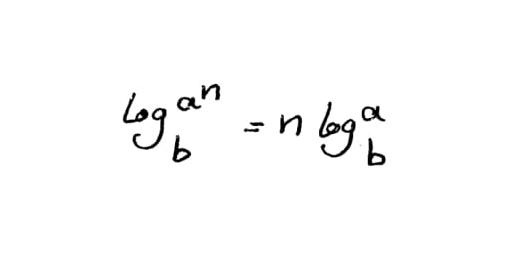 log_b^{a^n} = n log_b^a